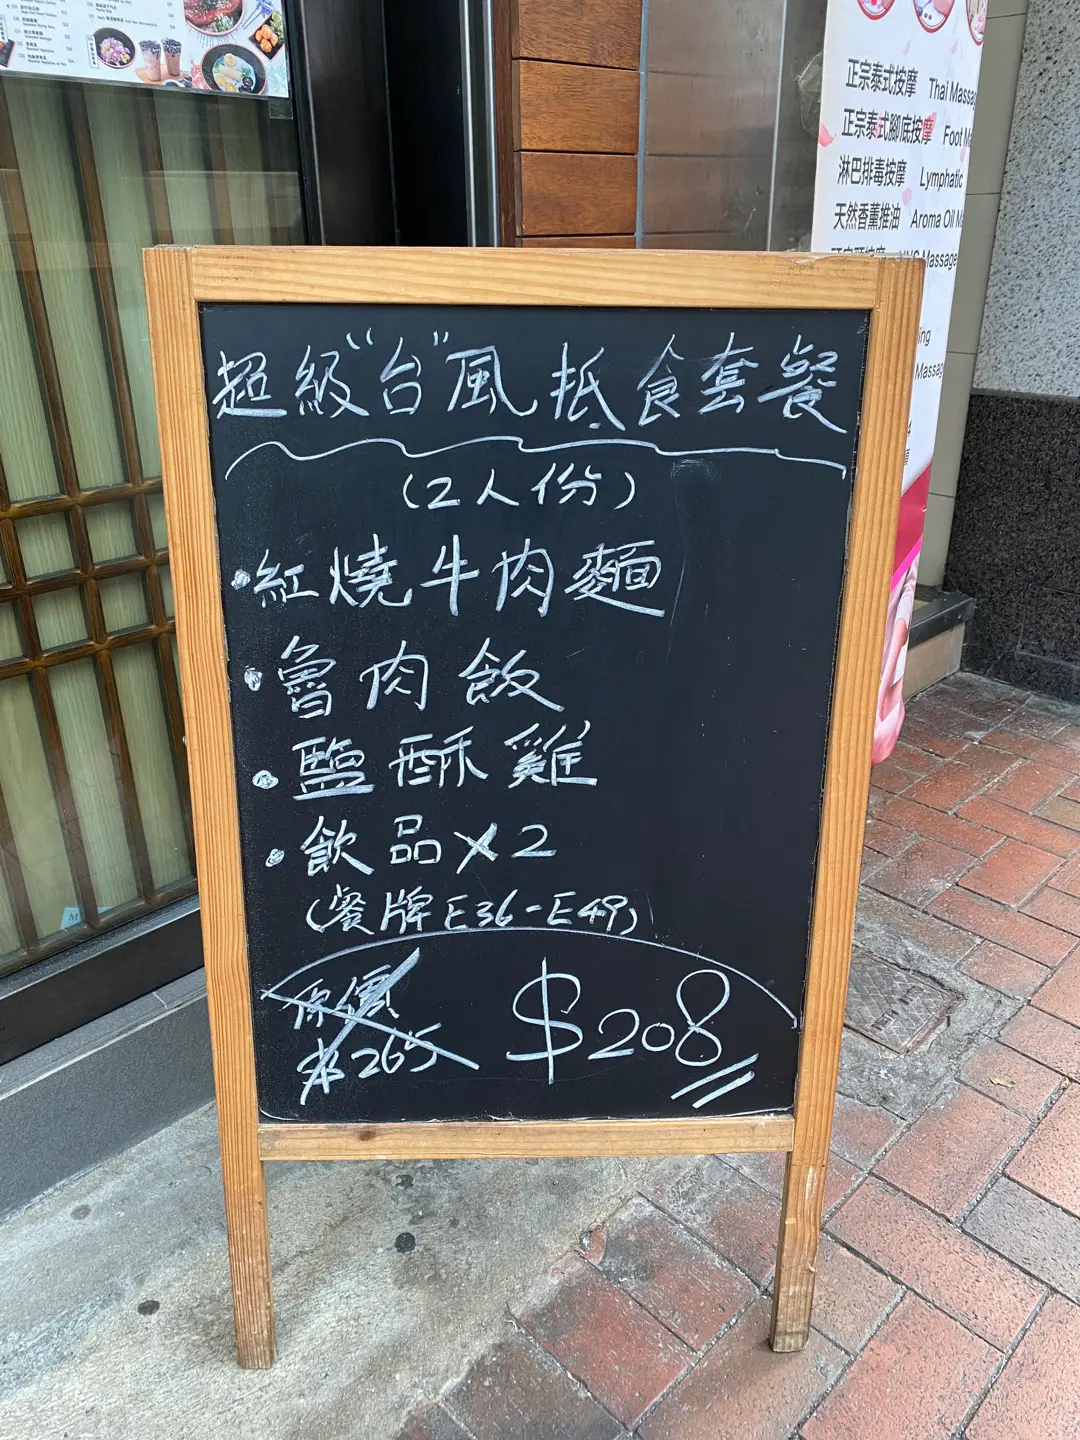 超級"台"風抵食套餐
(2人份)
·紅燒牛肉麵
·魯肉飯
·鹽酥雞
·飲品×2
(餐牌E36-E49)
原價
$265
$208
正宗泰式按摩 Thai Massag
正宗泰式腳底按摩 Foot M
淋巴排毒按摩 Lymphatic
天然香薰推油 Aroma Oil M
Massage
Massag